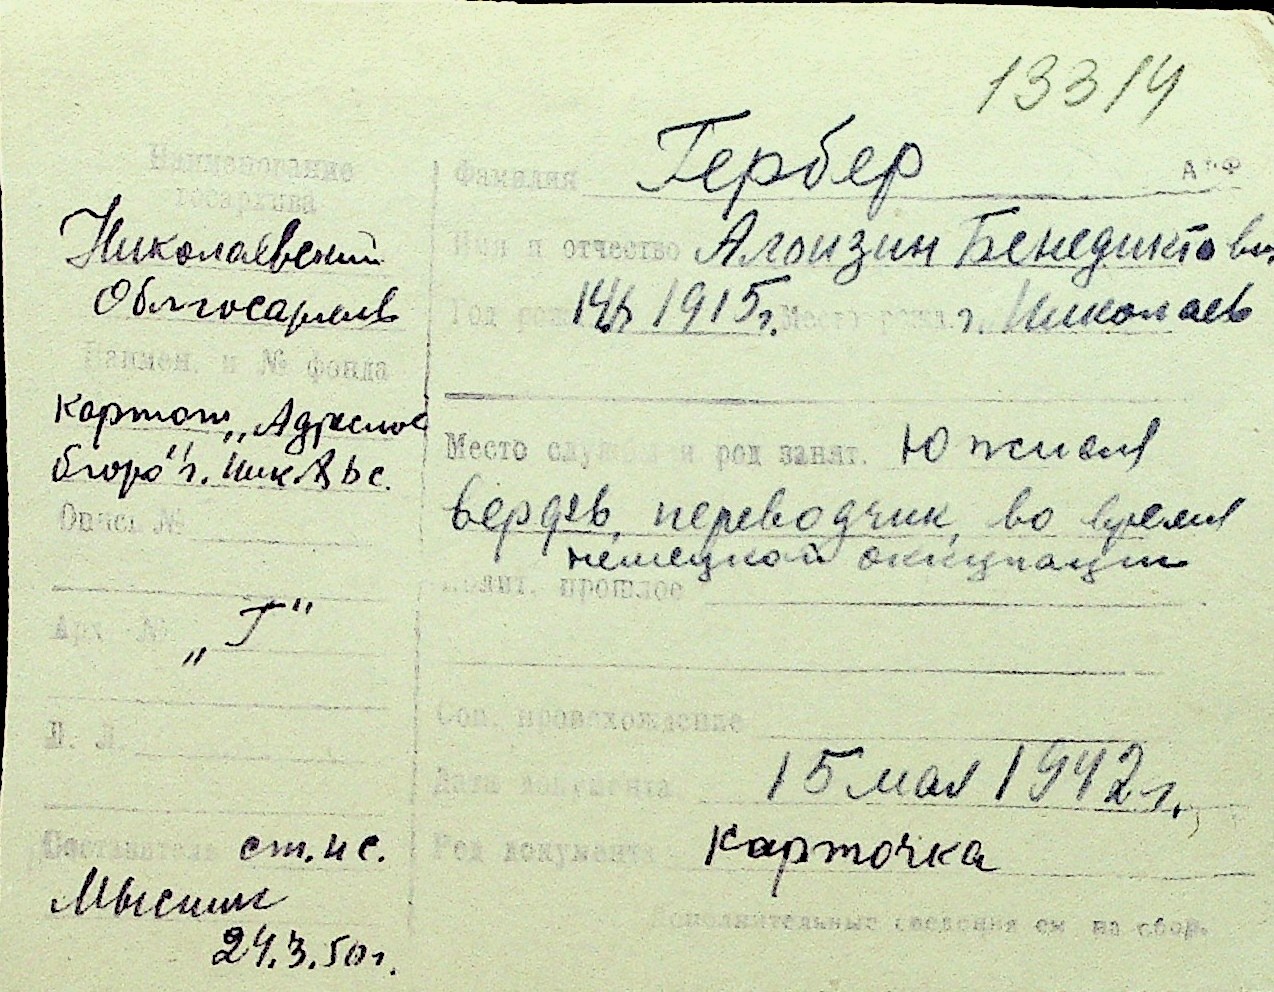 13314
Фамилия Гербер
Имя и отчество Алоизий Бенедиктови
Год рожд 1915г. Место рожд. г. Николаев
Место службы и род занят. Южная
верфь, переводчик, во время
немецкой оккупации
Полит. прошлое
Соц. происхождение
Дата документа 15 мая 1942 г.
Род документа Карточка
Дополнительные сведения см на обор.
Наименование
госархива
Николаевский
Облгосархив
Наимен. и № фонда
Картот. „Адресное
бюро" г.
Опись №
Арх. № „Г"
Д. Л.
Составитель ст. нс.
24.3.50г.